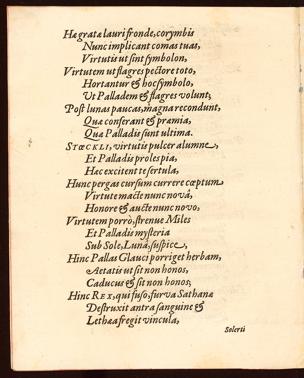 Hæ gratæ lauri fronde, corymbis
Nunc implicant comas tuas,
Virtutis ut sint symbolon,
Virtutem ut flagres pectore toto,
Hortantur & hoc symbolo,
Ut Palladem & flagres volunt;
Post lunas paucas, magna recondunt,
Quæ conferant & præmia,
Quæ Palladis sunt ultima.
STŒCKLI, virtutis pulcer alumne,
Et Palladis proles pia,
Hæc excitent te sertula,
Hunc pergas cursum currere cœptum
Virtute macte nunc novâ,
Honore & aucte nunc novo,
Virtutem porrò, strenue Miles
Et Palladis mysteria
Sub Sole, Lunâ, suspice,
Hinc Pallas Glauci porriget herbam,
Aetatis ut sit non honos,
Caducus & sit non honos,
Hinc REX, qui fuso, furva Sathanæ
Destruxit antra sanguine &
Lethæa fregit vincula,
Solerti